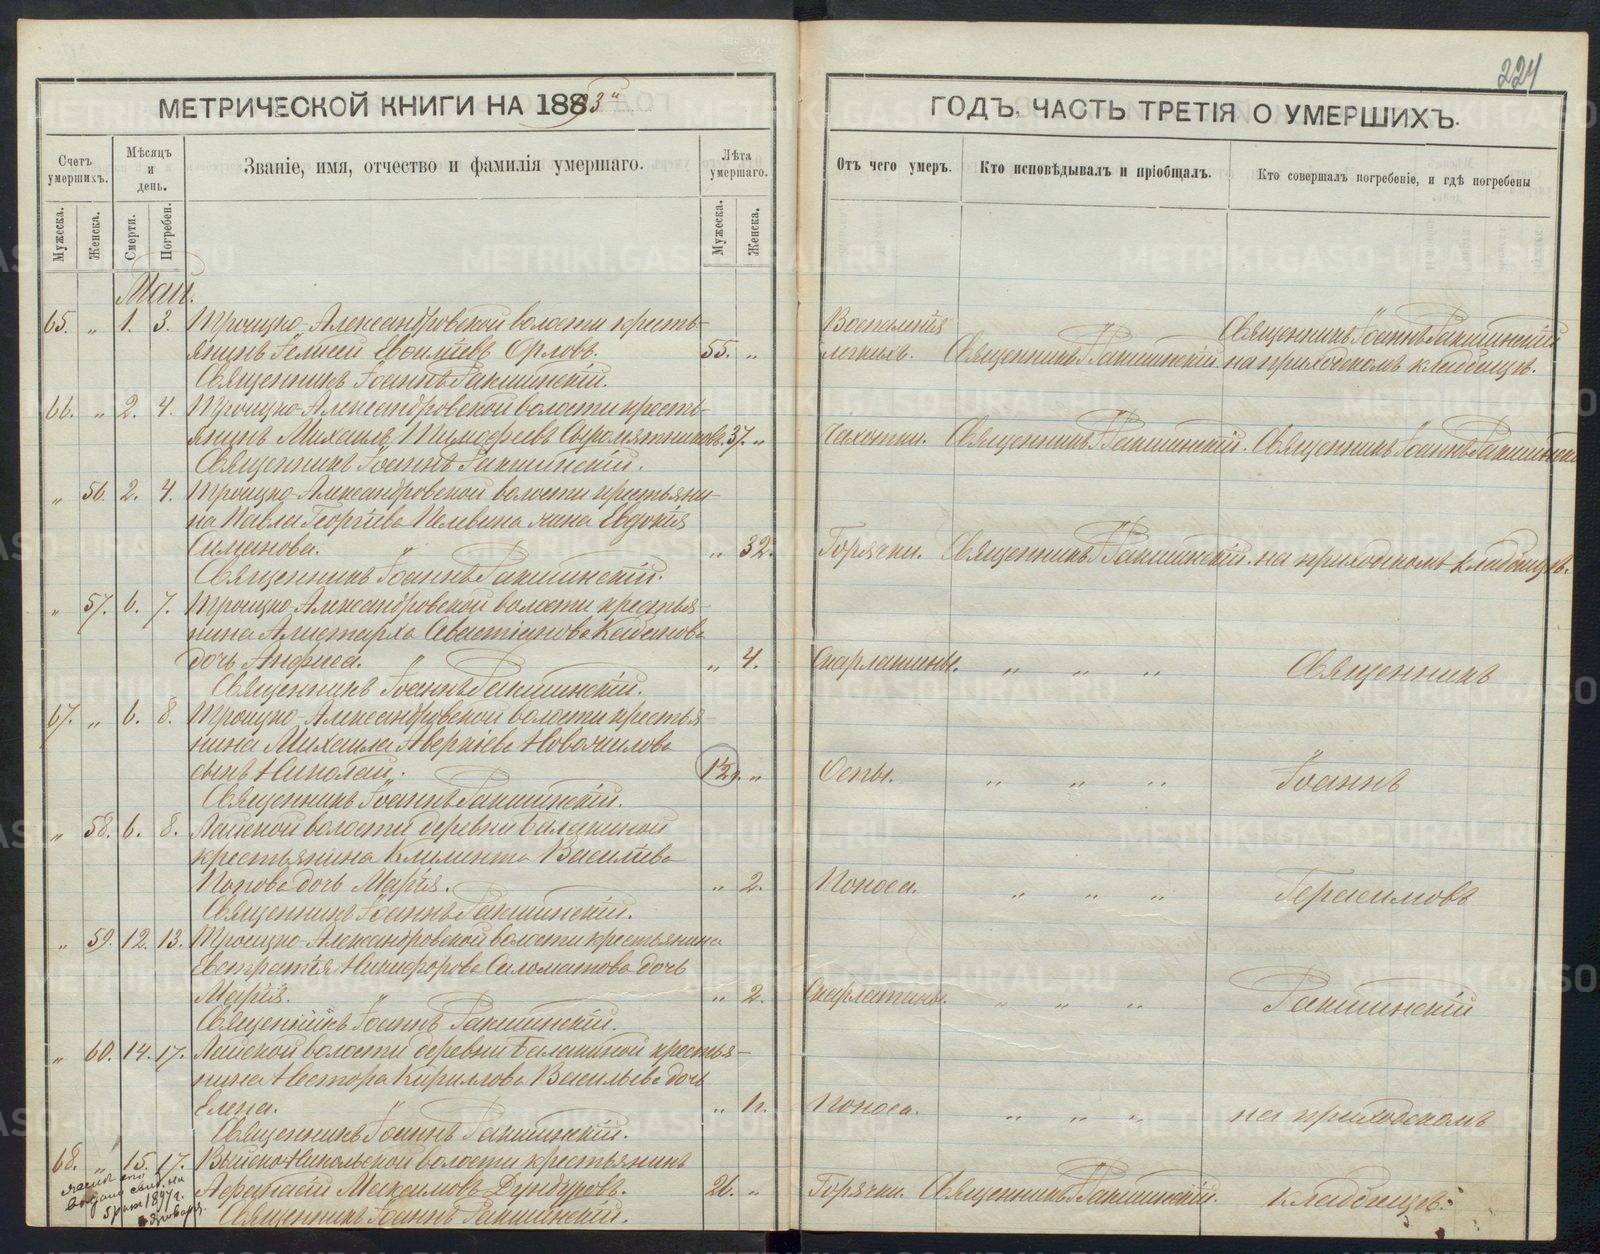 224
МЕТРИЧЕСКОЙ КНИГИ НА 1893й
ГОДЪ, ЧАСТЬ ТРЕТІЯ О УМЕРШИХЪ.
Счетъ умершихъ.
Мѣсяцъ и день.
Званіе, имя, отчество и фамилія умершаго.
Лѣта умершаго.
Отъ чего умеръ.
Кто исповѣдывалъ и пріобщалъ.
Кто совершалъ погребеніе, и гдѣ погребены
Мужеска.
Женска.
Смерти.
Погребен.
Мужеска.
Женска.
Май.
65. „ 1. 3. Троицко-Александровской волости кресть-
янинъ Елисей Орловъ. 55. „
Священникъ Іоаннъ Ракшинскій.
Воспаленія
легкихъ. Священникъ Ракшинскій.
Священникъ Іоаннъ Ракшинскій
на приходскомъ кладбищѣ.
66. „ 2. 4. Троицко-Александровской волости кресть-
янинъ Михаилъ Тимофеевъ Сыромятниковъ. 37. „
Священникъ Іоаннъ Ракшинскій.
Чахотки. Священникъ Ракшинскій. Священникъ Іоаннъ Ракшинскій
„ 56. 2. 4. Троицко-Александровской волости крестьяни-
на Павла Георгіева Пелевина жена Евдокія
Симанова. „ 32.
Священникъ Іоаннъ Ракшинскій.
Горячки. Священникъ Ракшинскій. на приходскомъ кладбищѣ.
„ 57. 6. 7. Троицко-Александровской волости крестья-
нина Аристарха Севастіанова
дочь Анфиса. „ 4.
Священникъ Іоаннъ Ракшинскій.
Скарлатины. „ „ „ Священникъ
67. „ 6. 8. Троицко-Александровской волости крестья-
нина Михаила Аверкіева Новожилова
сынъ Николай. „
Священникъ Іоаннъ Ракшинскій.
Оспы. „ „ „ Іоаннъ
„ 58. 6. 8. Лайской волости деревни Балакиной
крестьянина Климента Васильева
Попова дочь Марія. „ 2.
Священникъ Іоаннъ Ракшинскій.
Поноса. „ „ „ Герасимовъ
„ 59. 12. 13. Троицко-Александровской волости крестьянина
Евстратія Никифорова Саломатова дочь
Марія. „ 2.
Священникъ Іоаннъ Ракшинскій.
Скарлатины. „ „ „ Ракшинскій
„ 60. 14. 17. Лайской волости деревни Балакиной крестья-
нина Нестора Кириллова Васильева дочь
Елена. „
Священникъ Іоаннъ Ракшинскій.
Поноса. „ „ „ на приходскомъ
68. „ 15. 17. Выйско-Никольской волости крестьянинъ
Афанасій Максимовъ 26. „
Священникъ Іоаннъ Ракшинскій.
Горячки. Священникъ Ракшинскій. кладбищѣ.
1897 г.
января.
METRIKI.GASO-URAL.RU